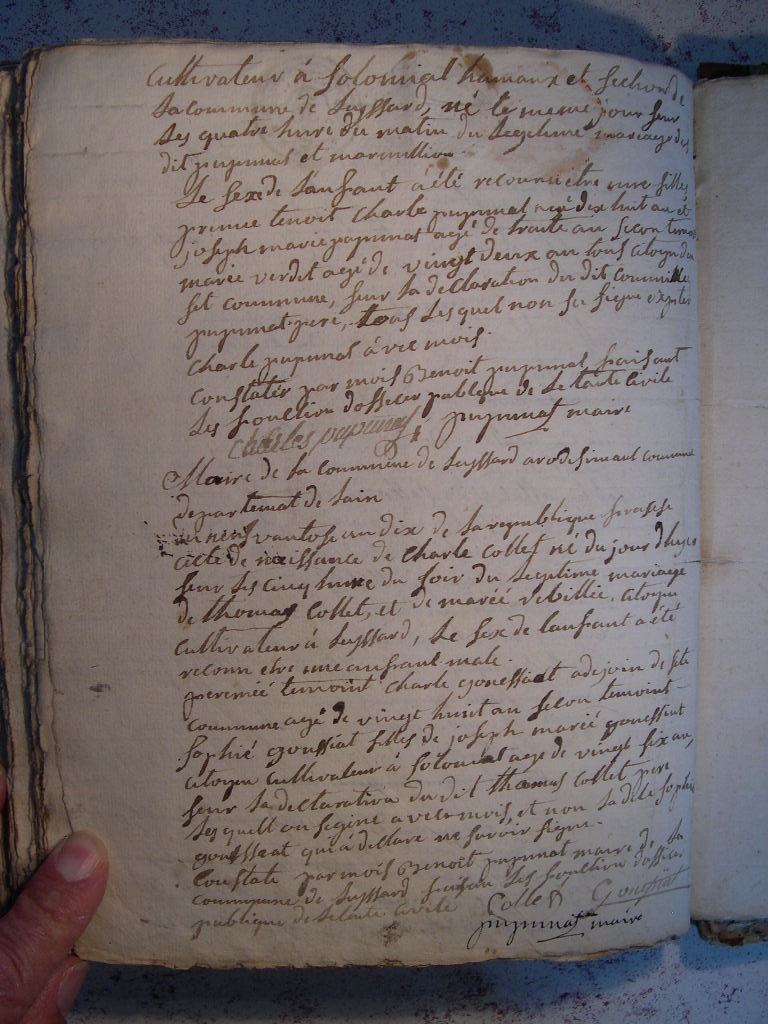 Cultivateur á Soloniat hamaux et section de
La commune de Luÿssard, né le meme jour sur
Les quatre hure du matin du Septieme mariaege des
dit pupunat et marmillion
Le sexe de Lanfant á été reconnu etre une filles
premie temoit Charle pupunat agé dex huit an et
joseph marie pupunat agé de traite an Secon temoit
marie verdet agé de vingt deux an tous Citoyen de
set commune, sur la declaration du dit
pupunat pere, tous Lesquel non su signe exepter
Charle pupunat á vec mois.
Constater par mois Benoit pupunat faisant
Les fonction dofficier publique de Le taite Civile
Charles pupunat pupunat maire
Maire de la commune de Luÿssard arodisimant
departemat de Lain
Lan neuf vantose an dix de la republique fransese
acte de naissance de Charle Collet né du jour dhuÿs
sur les cinq hure du soir du septime mariaege
de thomas Collet, et de marée rebillée, Citoyen
Cultivateur á Luÿssard, Le sex de Lanfant a eté
reconn etre une anfrant male.
peremée temoint Charle goueffiat adejoin de sete
commune agé de vingt huit an Secon temoint
Sophié gouffiat filles de joseph marié goueffiat
Citoyen Cultivateur á Soloniat age de vingt six an,
sur la declarativa du dit thamas Collet pere
Lesquelt on segine a vec mois et non la dite Sophié
goueffeat qui á dellare ne savoir signe.
Constate par mois Benoit pupunat maire de la
commune de Luÿssard faisan Les fonction doffisie
publique de Letaite Civile Collet Gouffiat
pupunat maire